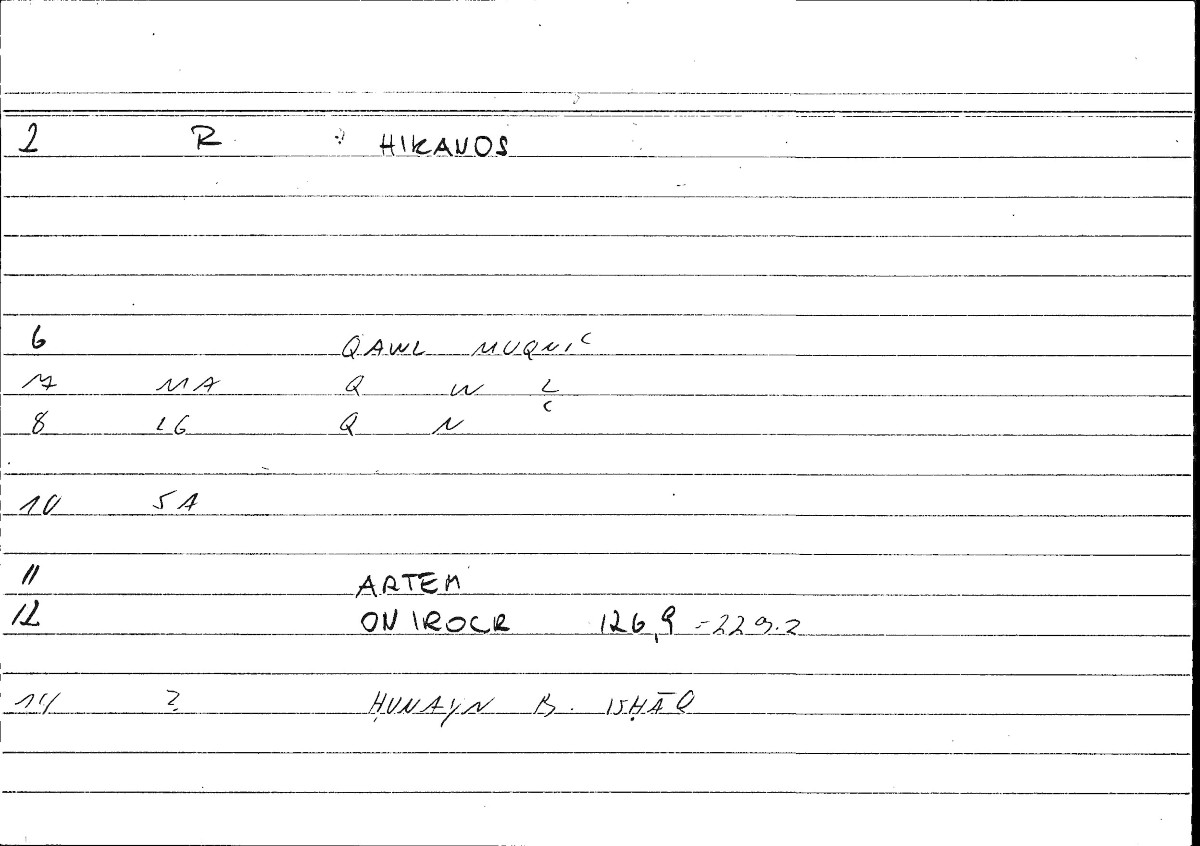 2 R HIKANOS
6 QAWL MUQNIʿ
7 MA Q W L
8 LG Q N ʿ
10 5A
11 ARTEM
12 ONIROCR 126,9 = 229.2
14 2 ḤUNAYN B. ISḤĀQ